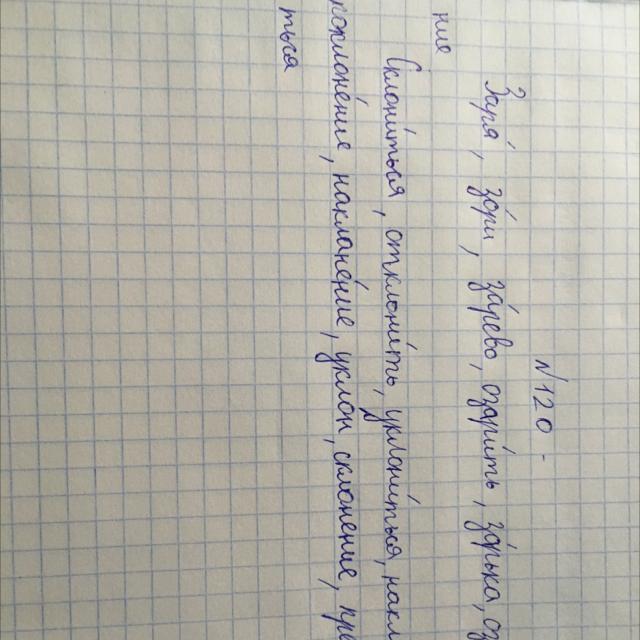 №120.
Заря́, зо́ри, за́рево, озари́ть, зо́рька, оз
ние
Склони́ться, отклони́ть, уклони́ться, накл
поклоне́ние, накланение, уклон, склонение, при
ться